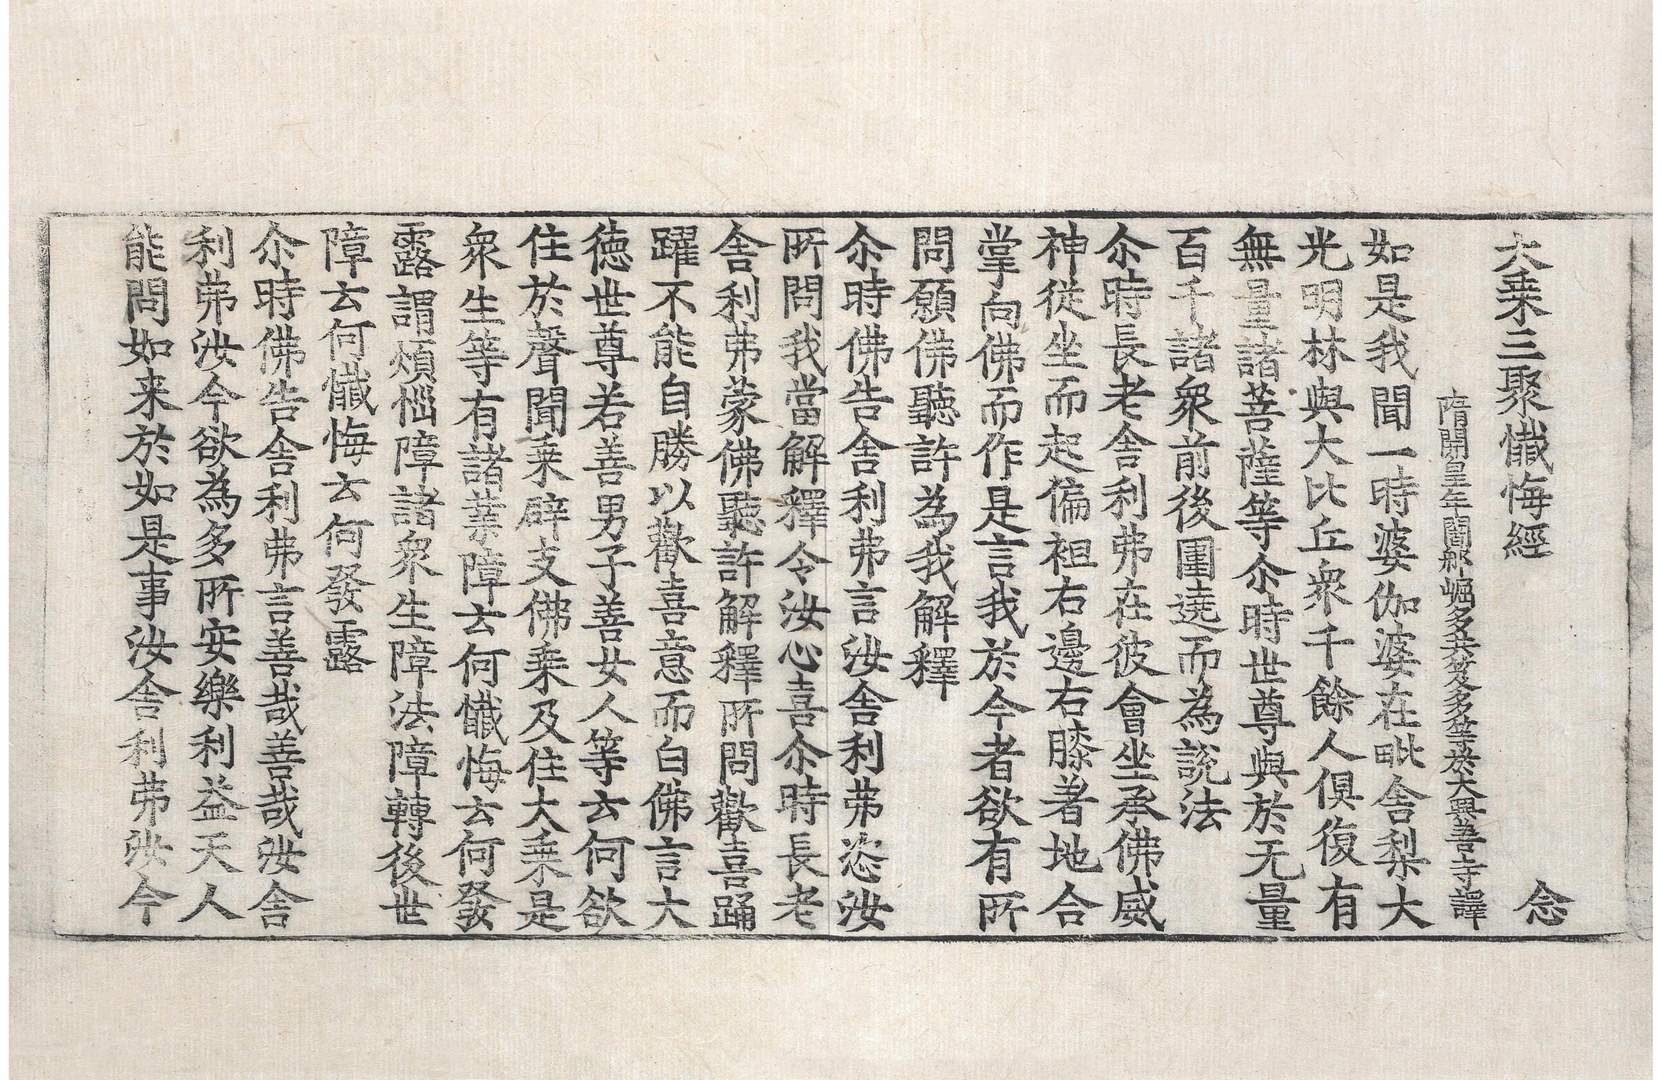 大乗三聚懴悔經　念
隋開皇年闍那崛多共笈多等於大興善寺譯
如是我聞一時婆伽婆在毗舍梨大
光明林與大比丘衆千餘人俱復有
無量諸菩薩等尒時世尊與於无量
百千諸衆前後圍遶而為說法
尒時長老舍利弗在彼會坐承佛威
神從坐而起偏袒右邊右膝著地合
掌向佛而作是言我於今者欲有所
問願佛聽許為我解釋
尒時佛告舍利弗言汝舍利弗恣汝
所問我當解釋令汝心喜尒時長老
舍利弗蒙佛聽許解釋所問歡喜踊
躍不能自勝以歡喜意而白佛言大
徳世尊若善男子善女人等云何欲
住於聲聞乗辟支佛乗及住大乗是
衆生等有諸業障云何懴悔云何發
露謂煩惱障諸衆生障法障轉後世
障云何懴悔云何發露
尒時佛告舍利弗言善哉善哉汝舍
利弗汝今欲為多所安樂利益天人
能問如来於如是事汝舍利弗汝今